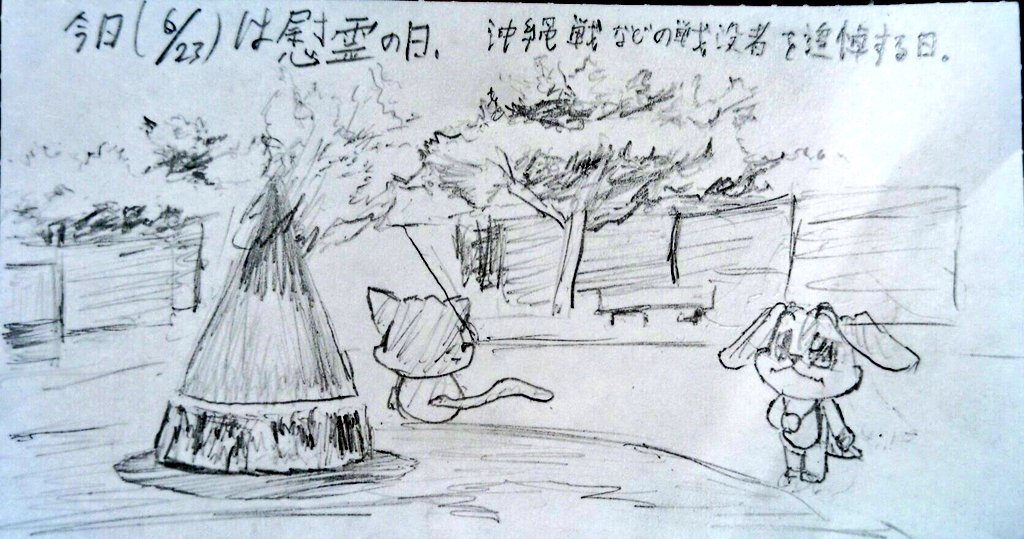 今日(6/23)は慰霊の日. 沖縄戦などの戦没者を追悼する日。